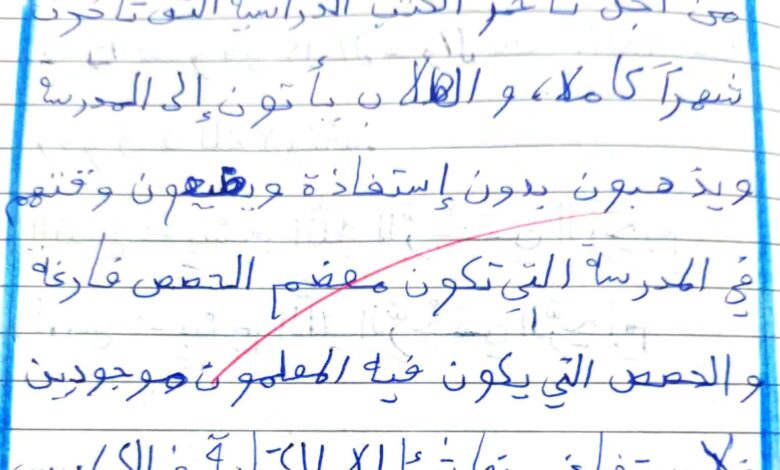 من أجل تأخر الكتب الدراسية التي تأخرت
شهراً كاملا، و الطلاب يأتون إلى المدرسة
ويذهبون بدون إستفاذة ويضيعون وقتهم
في المدرسة التي تكون معضم الحصص فارغة
و الحصص التي يكون فيه المعلمون موجودين